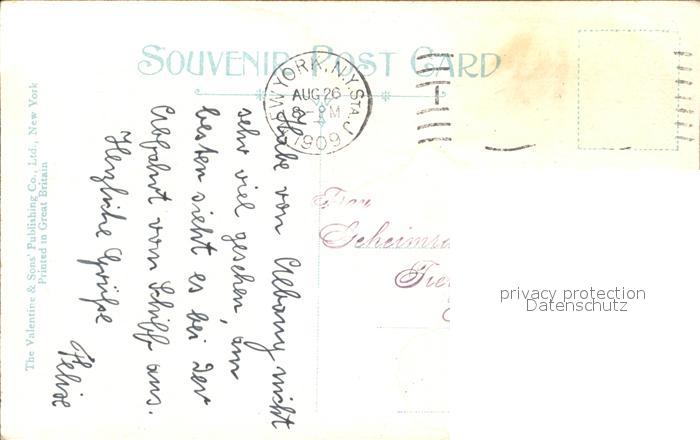 SOUVENIR POST CARD
NEW YORK, N.Y. STA. J
AUG 26
8 - PM
1909
Habe von Albany nicht
sehr viel gesehen, am
besten sieht es bei der
Abfahrt vom Schiff aus.
Herzliche Grüße
Felix
Frau
Geheimra
The Valentine & Sons' Publishing Co., Ltd., New York
Printed in Great Britain
privacy protection
Datenschutz